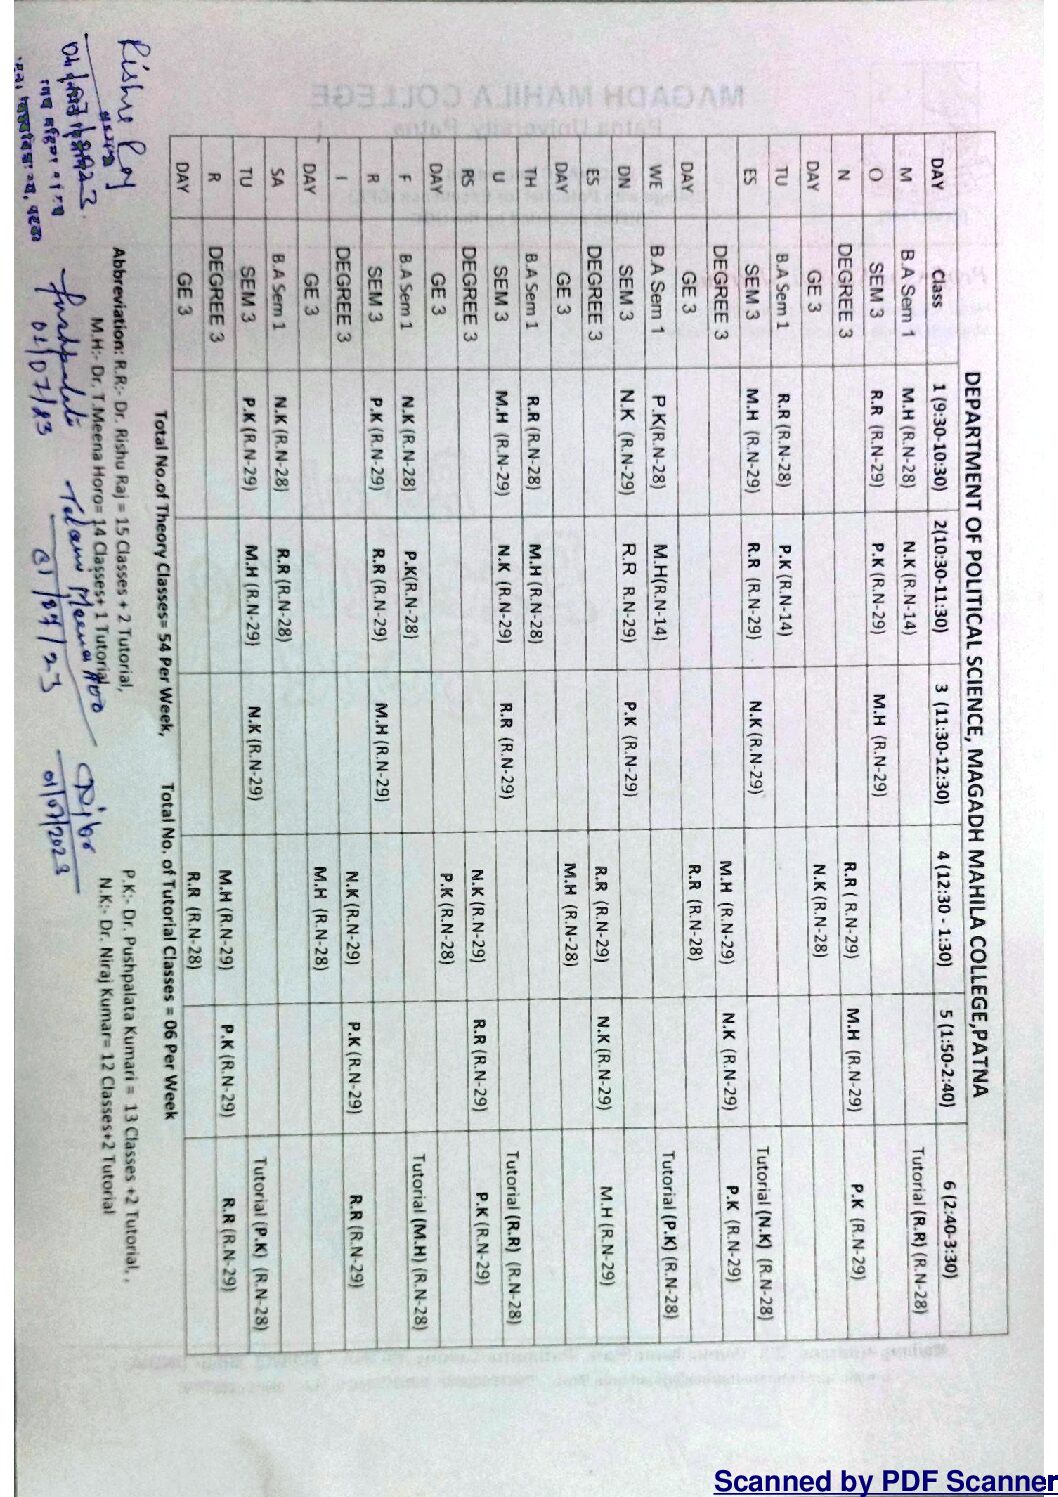 DEPARTMENT OF POLITICAL SCIENCE, MAGADH MAHILA COLLEGE,PATNA
DAY Class 1 (9:30-10:30) 2(10:30-11:30) 3 (11:30-12:30) 4 (12:30 - 1:30) 5 (1:50-2:40) 6 (2:40-3:30)
M B.A Sem 1 M.H (R.N-28) N.K (R.N-14) Tutorial (R.R) (R.N-28)
O SEM 3 R.R (R.N-29) P.K (R.N-29) M.H (R.N-29)
N DEGREE 3 R.R ( R.N-29) M.H (R.N-29) P.K (R.N-29)
DAY GE 3 N.K (R.N-28)
TU B.A Sem 1 R.R (R.N-28) P.K (R.N-14)
ES SEM 3 M.H (R.N-29) R.R (R.N-29) N.K (R.N-29) Tutorial (N.K) (R.N-28)
DEGREE 3 M.H (R.N-29) N.K (R.N-29) P.K (R.N-29)
DAY GE 3 R.R (R.N-28)
WE B.A Sem 1 P.K(R.N-28) M.H(R.N-14) Tutorial (P.K) (R.N-28)
DN SEM 3 N.K (R.N-29) R.R R.N-29) P.K (R.N-29)
ES DEGREE 3 R.R (R.N-29) N.K (R.N-29) M.H (R.N-29)
DAY GE 3 M.H (R.N-28)
TH B.A Sem 1 R.R (R.N-28) M.H (R.N-28)
U SEM 3 M.H (R.N-29) N.K (R.N-29) R.R (R.N-29) Tutorial (R.R) (R.N-28)
RS DEGREE 3 N.K (R.N-29) R.R (R.N-29) P.K (R.N-29)
DAY GE 3 P.K (R.N-28)
F B.A Sem 1 N.K (R.N-28) P.K(R.N-28) Tutorial (M.H) (R.N-28)
R SEM 3 P.K (R.N-29) R.R (R.N-29) M.H (R.N-29)
I DEGREE 3 N.K (R.N-29) P.K (R.N-29) R.R (R.N-29)
DAY GE 3 M.H (R.N-28)
SA B.A Sem 1 N.K (R.N-28) R.R (R.N-28)
TU SEM 3 P.K (R.N-29) M.H (R.N-29) N.K (R.N-29) Tutorial (P.K) (R.N-28)
R DEGREE 3 M.H (R.N-29) P.K (R.N-29) R.R (R.N-29)
DAY GE 3 R.R (R.N-28)
Total No.of Theory Classes= 54 Per Week, Total No. of Tutorial Classes = 06 Per Week
Abbreviation: R.R:- Dr. Rishu Raj = 15 Classes + 2 Tutorial, P.K:- Dr. Pushpalata Kumari = 13 Classes +2 Tutorial, ,
M.H:- Dr. T.Meena Horo= 14 Classes+ 1 Tutorial N.K:- Dr. Niraj Kumar= 12 Classes+2 Tutorial
01/07/23
01/07/23
01/07/2023
Scanned by PDF Scanner